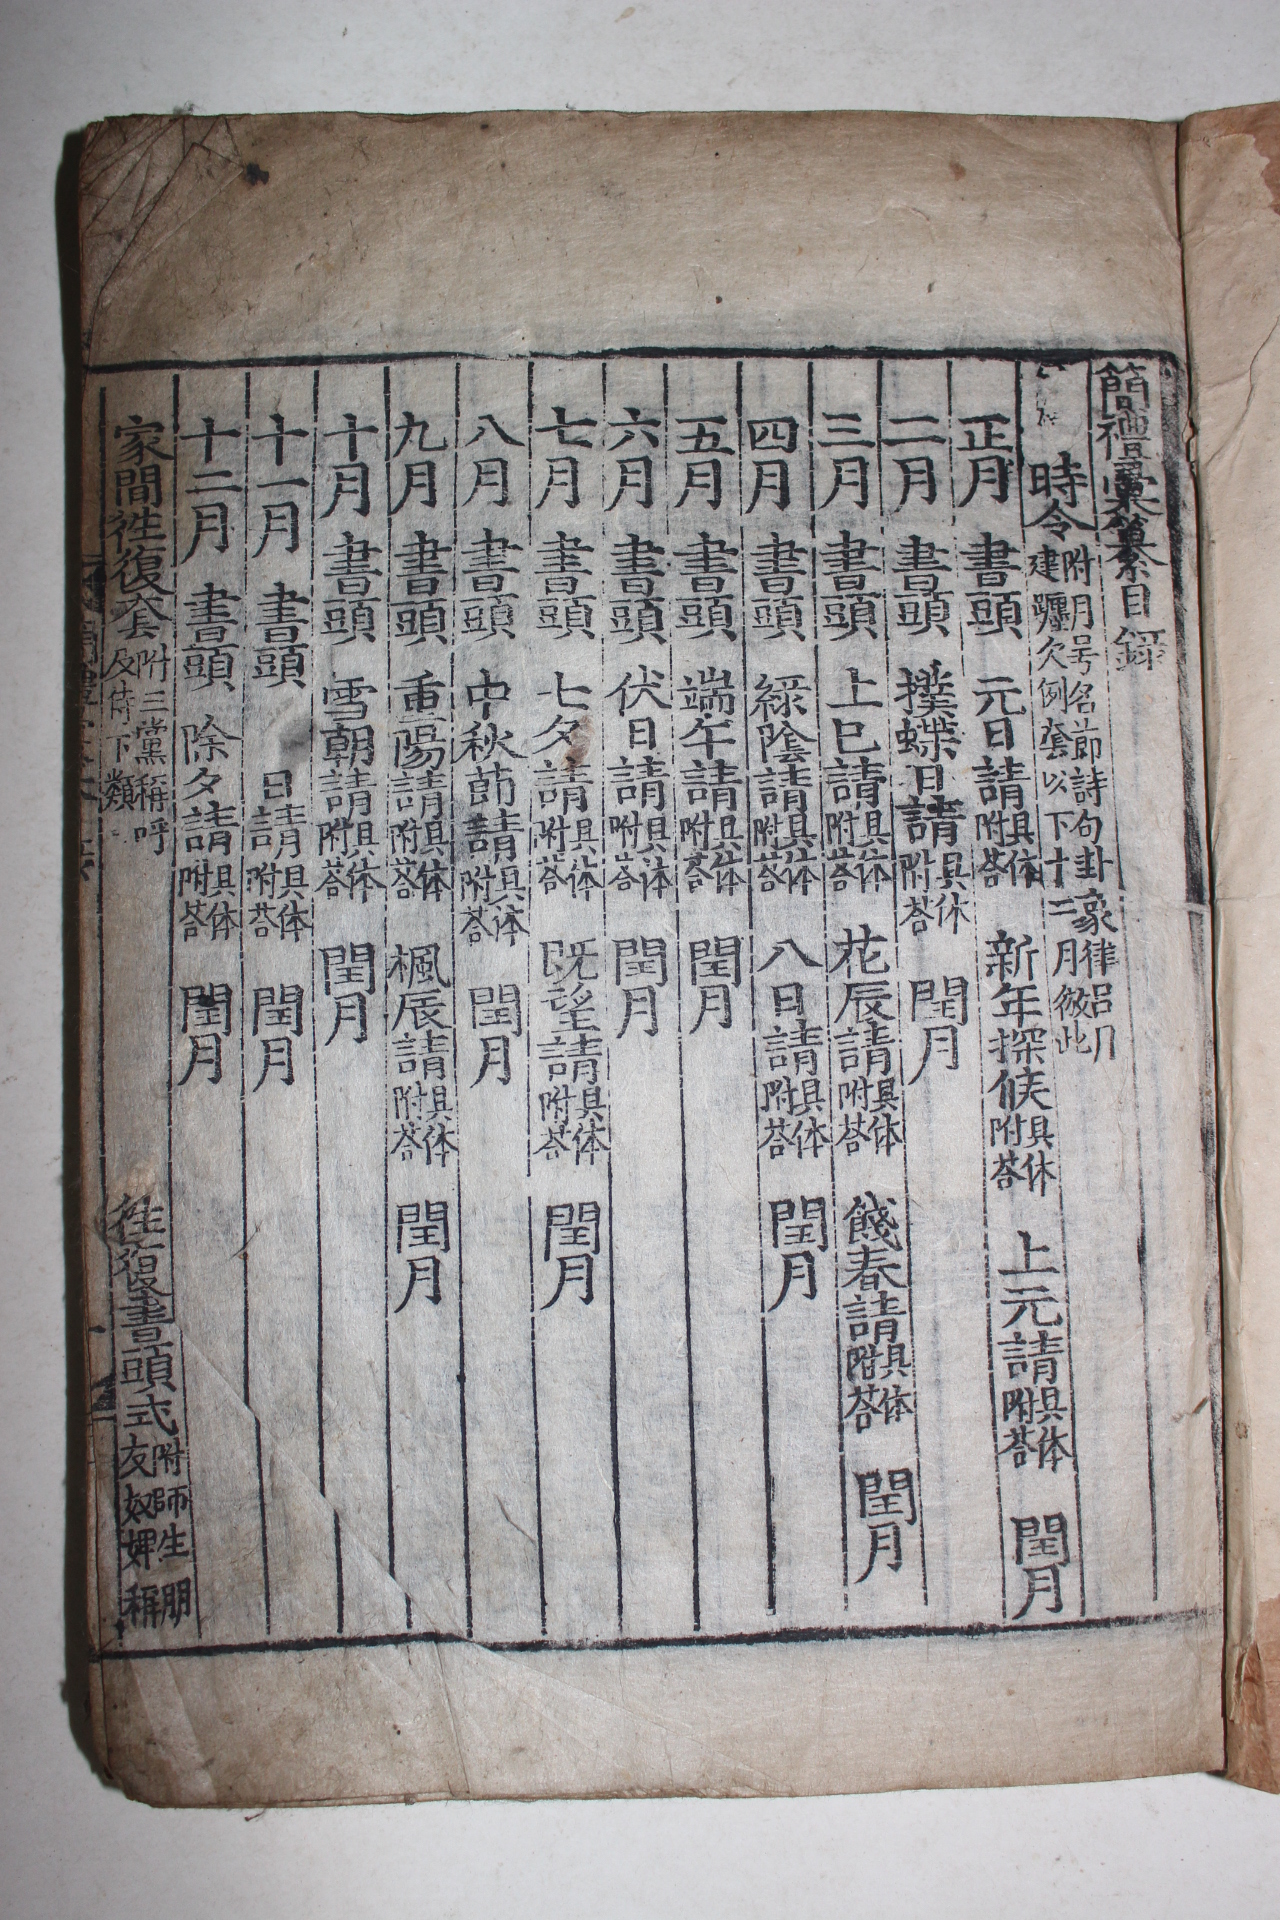 簡禮彙纂目錄
時令 附月号名節詩句卦彖律呂月
建躔欠例套以下十二月倣此
正月 書頭 元日請 具体附荅 新年探候 具体附荅 上元請 具体附荅 閏月
二月 書頭 撲蝶日請 具体附荅 閏月
三月 書頭 上巳請 具体附荅 花辰請 具体附荅 餞春請 具体附荅 閏月
四月 書頭 綠陰請 具体附荅 八日請 具体附荅 閏月
五月 書頭 端午請 具体附荅 閏月
六月 書頭 伏日請 具体附荅 閏月
七月 書頭 七夕請 具体附荅 旣望請 具体附荅 閏月
八月 書頭 中秋節請 具体附荅 閏月
九月 書頭 重陽請 具体附荅 楓辰請 具体附荅 閏月
十月 書頭 雪朝請 具体附荅 閏月
十一月 書頭 日請 具体附荅 閏月
十二月 書頭 除夕請 具体附荅 閏月
家間往復套 附三黨稱呼
及侍下類 往復書頭式 附師生朋
友奴婢稱